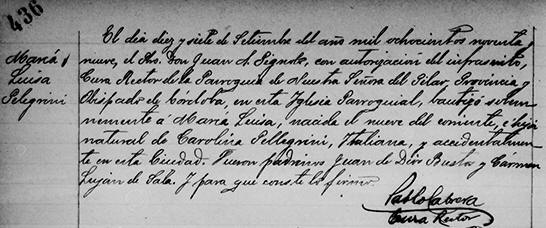 436
María
Luisa
Pelegrini
El dia diez y siete de Setiembre del año mil ochocientos noventa y
nueve, el Pbro. Don Juan A. Signote, con autorizacion del infrascrito,
Cura Rector de la Parroquia de Nuestra Señora del Pilar, Provincia y
Obispado de Cordoba, en esta Iglesia Parroquial, bautizó solem-
nemente á María Luisa, nacida el nueve del corriente, é hija
natural de Carolina Pellegrini, Italiana, y accidentalmen-
te en esta Ciudad. Fueron padrinos Juan de Dios Busto y Cármen
Lujan de Sala. Y para que conste lo firmo.
Pablo Cabrera
Cura Rector